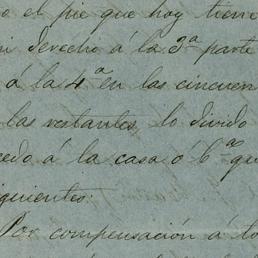 o el pié que hoy tiene
mi derecho á la 3ª parte
á la 4ª en las cincuen
las restantes, lo divido
cedo á la casa ó 6ªˢ qu
iguientes:
Por compensación á to